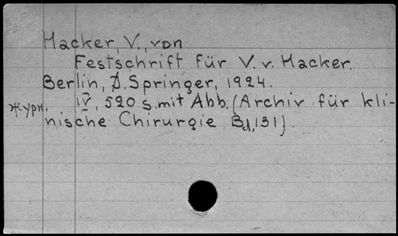 Hacker, V., von
Festschrift für V. v. Hacker.
Berlin, D. Springer, 1924.
журн. IV, 520 s. mit Abb. (Archiv für kli-
nische Chirurgie Bd, 131).